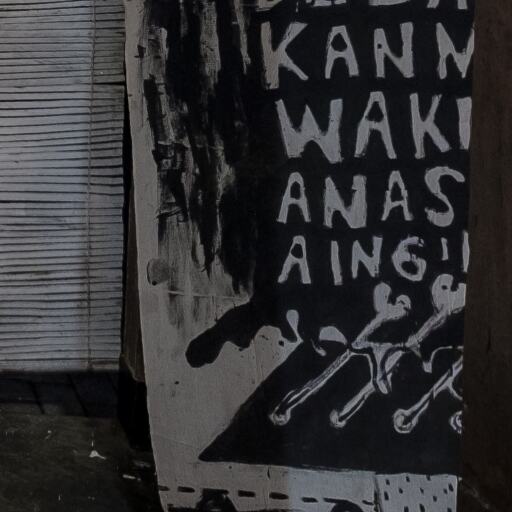 KANN
WAKI
ANAS
AING'I